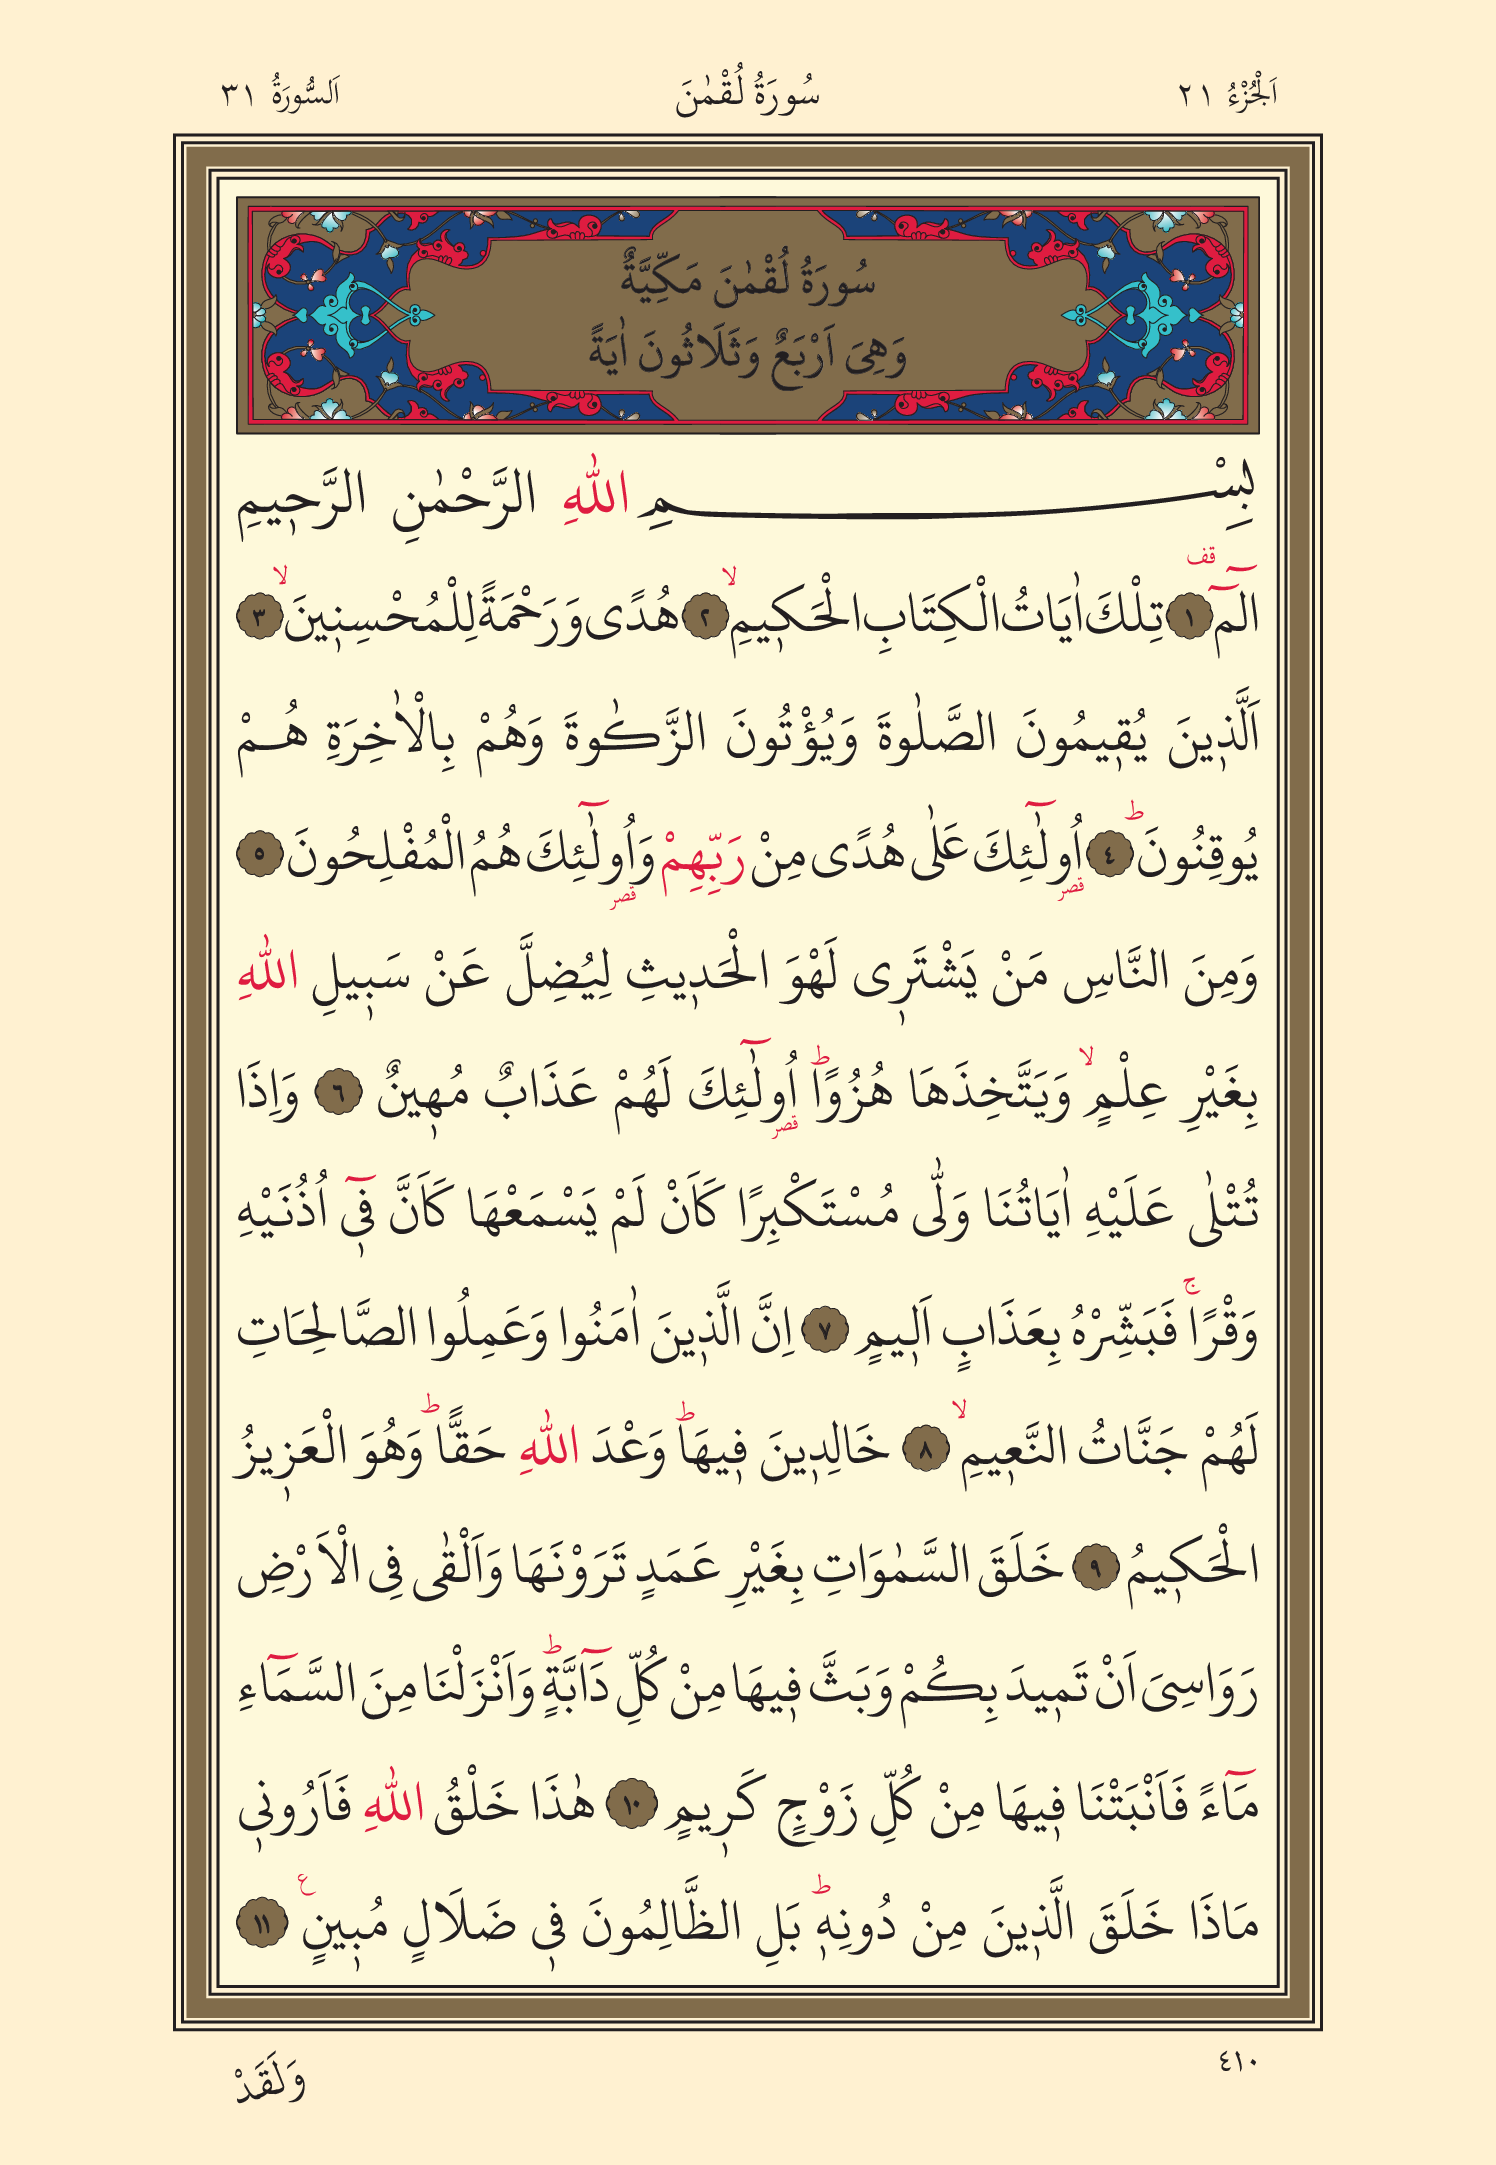 اَلْجُزْءُ ٢١ سُورَةُ لُقْمٰنَ اَلسُّورَةُ ٣١
سُورَةُ لُقْمٰنَ مَكِّيَّةٌ
وَهِىَ اَرْبَعٌ وَثَلَاثُونَ اٰيَةً
بِسْــــــــــــمِ اللّٰهِ الرَّحْمٰنِ الرَّح۪يمِ
الٓمٓ ۗقف ﴿١﴾ تِلْكَ اٰيَاتُ الْكِتَابِ الْحَك۪يمِۙ ﴿٢﴾ هُدًى وَرَحْمَةً لِلْمُحْسِن۪ينَۙ ﴿٣﴾
اَلَّذ۪ينَ يُق۪يمُونَ الصَّلٰوةَ وَيُؤْتُونَ الزَّكٰوةَ وَهُمْ بِالْاٰخِرَةِ هُمْ
يُوقِنُونَۜ ﴿٤﴾ اُو۬لٰٓئِكَ عَلٰى هُدًى مِنْ رَبِّهِمْ وَاُو۬لٰٓئِكَ هُمُ الْمُفْلِحُونَ ﴿٥﴾
وَمِنَ النَّاسِ مَنْ يَشْتَر۪ى لَهْوَ الْحَد۪يثِ لِيُضِلَّ عَنْ سَب۪يلِ اللّٰهِ
بِغَيْرِ عِلْمٍۙ وَيَتَّخِذَهَا هُزُوًاۜ اُو۬لٰٓئِكَ لَهُمْ عَذَابٌ مُه۪ينٌ ﴿٦﴾ وَاِذَا
تُتْلٰى عَلَيْهِ اٰيَاتُنَا وَلّٰى مُسْتَكْبِرًا كَاَنْ لَمْ يَسْمَعْهَا كَاَنَّ ف۪ٓى اُذُنَيْهِ
وَقْرًاۚ فَبَشِّرْهُ بِعَذَابٍ اَل۪يمٍ ﴿٧﴾ اِنَّ الَّذ۪ينَ اٰمَنُوا وَعَمِلُوا الصَّالِحَاتِ
لَهُمْ جَنَّاتُ النَّع۪يمِۙ ﴿٨﴾ خَالِد۪ينَ ف۪يهَاۜ وَعْدَ اللّٰهِ حَقًّاۜ وَهُوَ الْعَز۪يزُ
الْحَك۪يمُ ﴿٩﴾ خَلَقَ السَّمٰوَاتِ بِغَيْرِ عَمَدٍ تَرَوْنَهَا وَاَلْقٰى فِى الْاَرْضِ
رَوَاسِىَ اَنْ تَم۪يدَ بِكُمْ وَبَثَّ ف۪يهَا مِنْ كُلِّ دَٓابَّةٍۜ وَاَنْزَلْنَا مِنَ السَّمَٓاءِ
مَٓاءً فَاَنْبَتْنَا ف۪يهَا مِنْ كُلِّ زَوْجٍ كَر۪يمٍ ﴿١٠﴾ هٰذَا خَلْقُ اللّٰهِ فَاَرُون۪ى
مَاذَا خَلَقَ الَّذ۪ينَ مِنْ دُونِه۪ۜ بَلِ الظَّالِمُونَ ف۪ى ضَلَالٍ مُب۪ينٍ۟ ﴿١١﴾
٤١٠
وَلَقَدْ